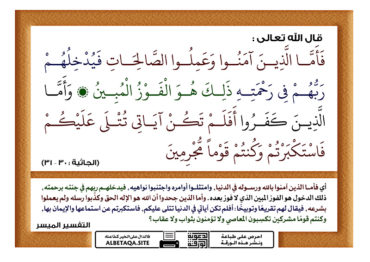 قال الله تعالى :
فَأَمَّا الَّذِينَ آمَنُوا وَعَمِلُوا الصَّالِحَاتِ فَيُدْخِلُهُمْ
رَبُّهُمْ فِي رَحْمَتِهِ ذَلِكَ هُوَ الْفَوْزُ الْمُبِينُ ۞ وَأَمَّا
الَّذِينَ كَفَرُوا أَفَلَمْ تَكُنْ آيَاتِي تُتْلَى عَلَيْكُمْ
فَاسْتَكْبَرْتُمْ وَكُنتُمْ قَوْماً مُّجْرِمِينَ
(الجاثية : ٣٠ - ٣١)
أي فأما الذين آمنوا بالله ورسوله في الدنيا, وامتثلوا أوامره واجتنبوا نواهيه, فيدخلهم ربهم في جنته برحمته,
ذلك الدخول هو الفوز المبين الذي لا فوز بعده. وأما الذين جحدوا أن الله هو الإله الحق وكذَّبوا رسله ولم يعملوا
بشرعه, فيقال لهم تقريعًا وتوبيخًا: أفلم تكن آياتي في الدنيا تتلى عليكم, فاستكبرتم عن استماعها والإيمان بها,
وكنتم قومًا مشركين تكسبون المعاصي ولا تؤمنون بثواب ولا عقاب؟
التفسير الميسر
احرص على طباعة
ونشر هذه الورقة
فالدال على الخير كفاعله
ALBETAQA.SITE